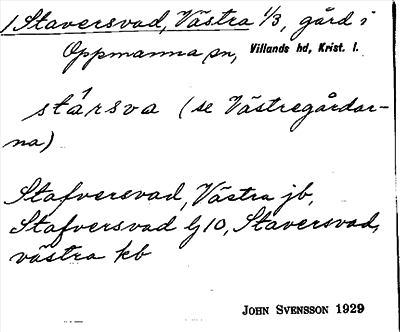 1 Staversvad, Västra 1/3, gård i
Oppmanna sn, Villands hd, Krist. l.
stársva (se Västregårdar-
na)
Stafversvad, Västra jb,
Stafversvad G 10, Staversvad,
västra kb
JOHN SVENSSON 1929